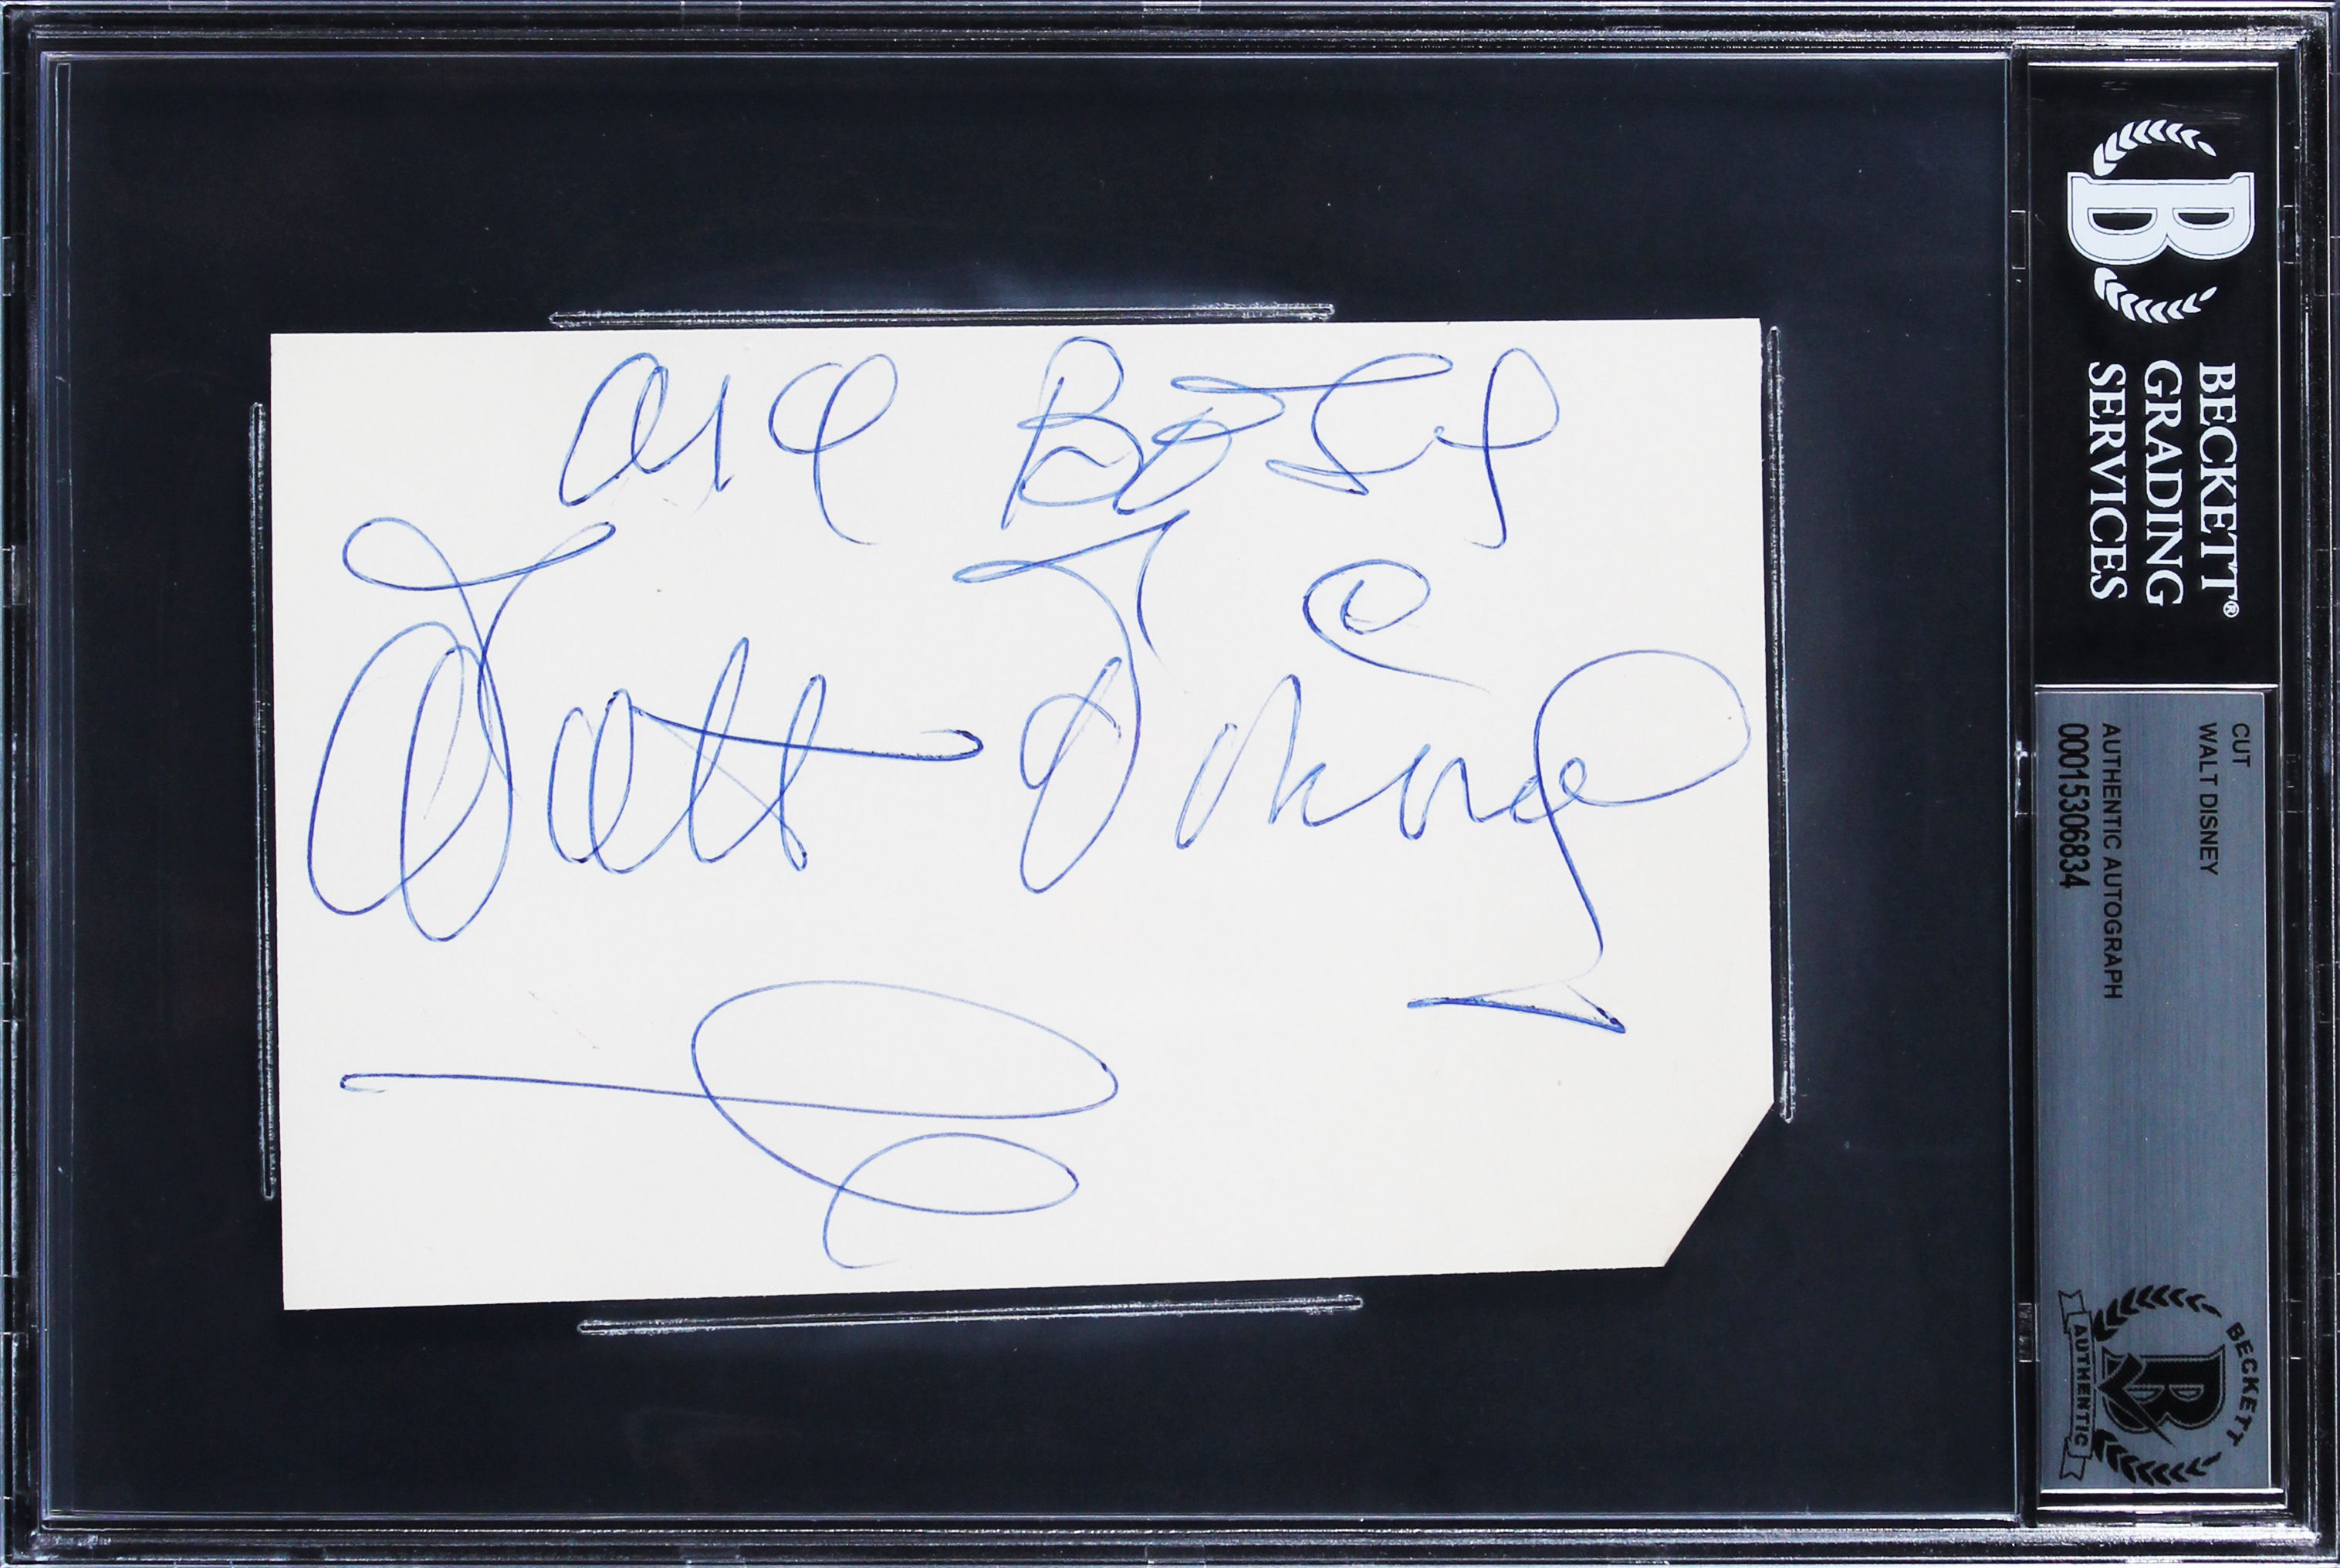 all Best
Walt Disney
BECKETT®
GRADING
SERVICES
CUT
WALT DISNEY
AUTHENTIC AUTOGRAPH
00015306834
BECKETT
B
AUTHENTIC